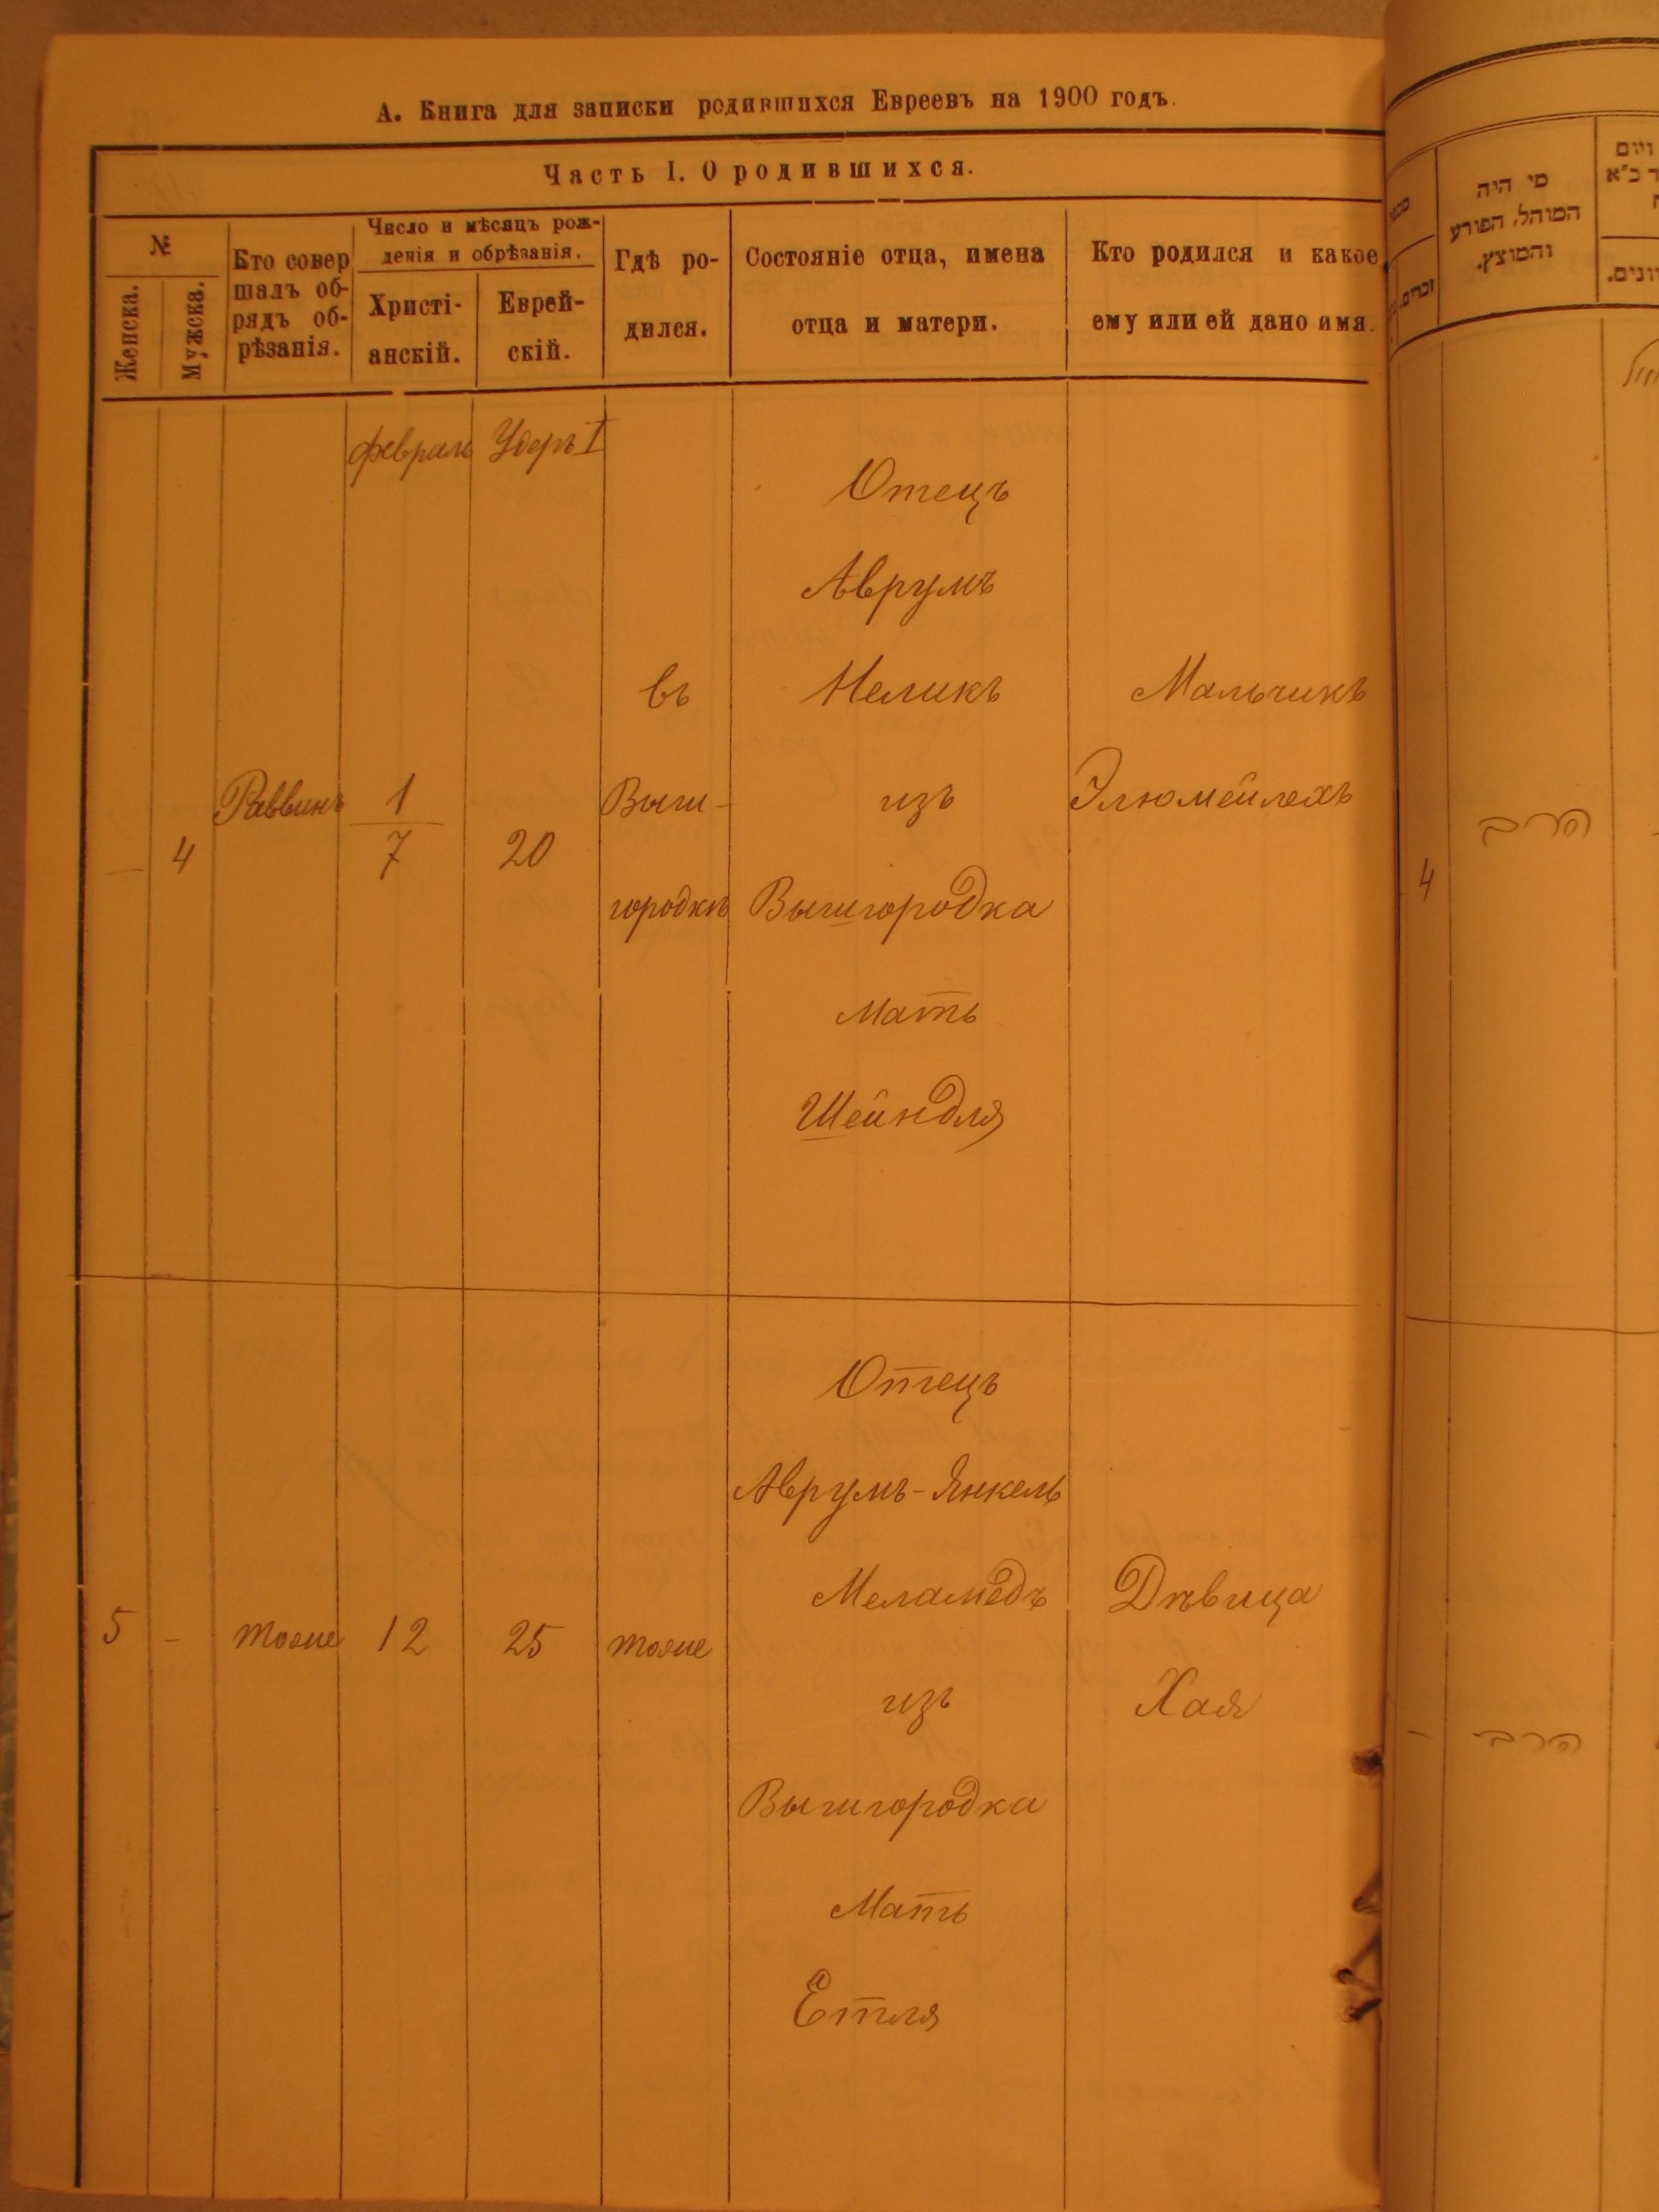 А. Книга для записки родившихся Евреевъ на 1900 годъ.
Часть I. О родившихся.
№
Женска.
Мужска.
Кто совер
шалъ об-
рядъ об-
рѣзанія.
Число и мѣсяцъ рож-
денія и обрѣзанія.
Христі-
анскій.
Еврей-
скій.
Гдѣ ро-
дился.
Состояніе отца, имена
отца и матери.
Кто родился и какое
ему или ей дано имя.
февраль
Удеръ I
—
4
Раввинъ
1
7
20
въ
Выш-
городкѣ
Отецъ
Аврумъ
Меликъ
изъ
Вышгородка
Мать
Шейндля
Мальчикъ
Элюмейлехъ
5
-
тоже
12
25
тоже
Отецъ
Аврумъ-Янкель
Меламедъ
изъ
Вышгородка
Мать
Етля
Дѣвица
Хая
מי היה
המוהל, הפורע
והמוצץ.
זכרים.
4
הרב
-
הרב